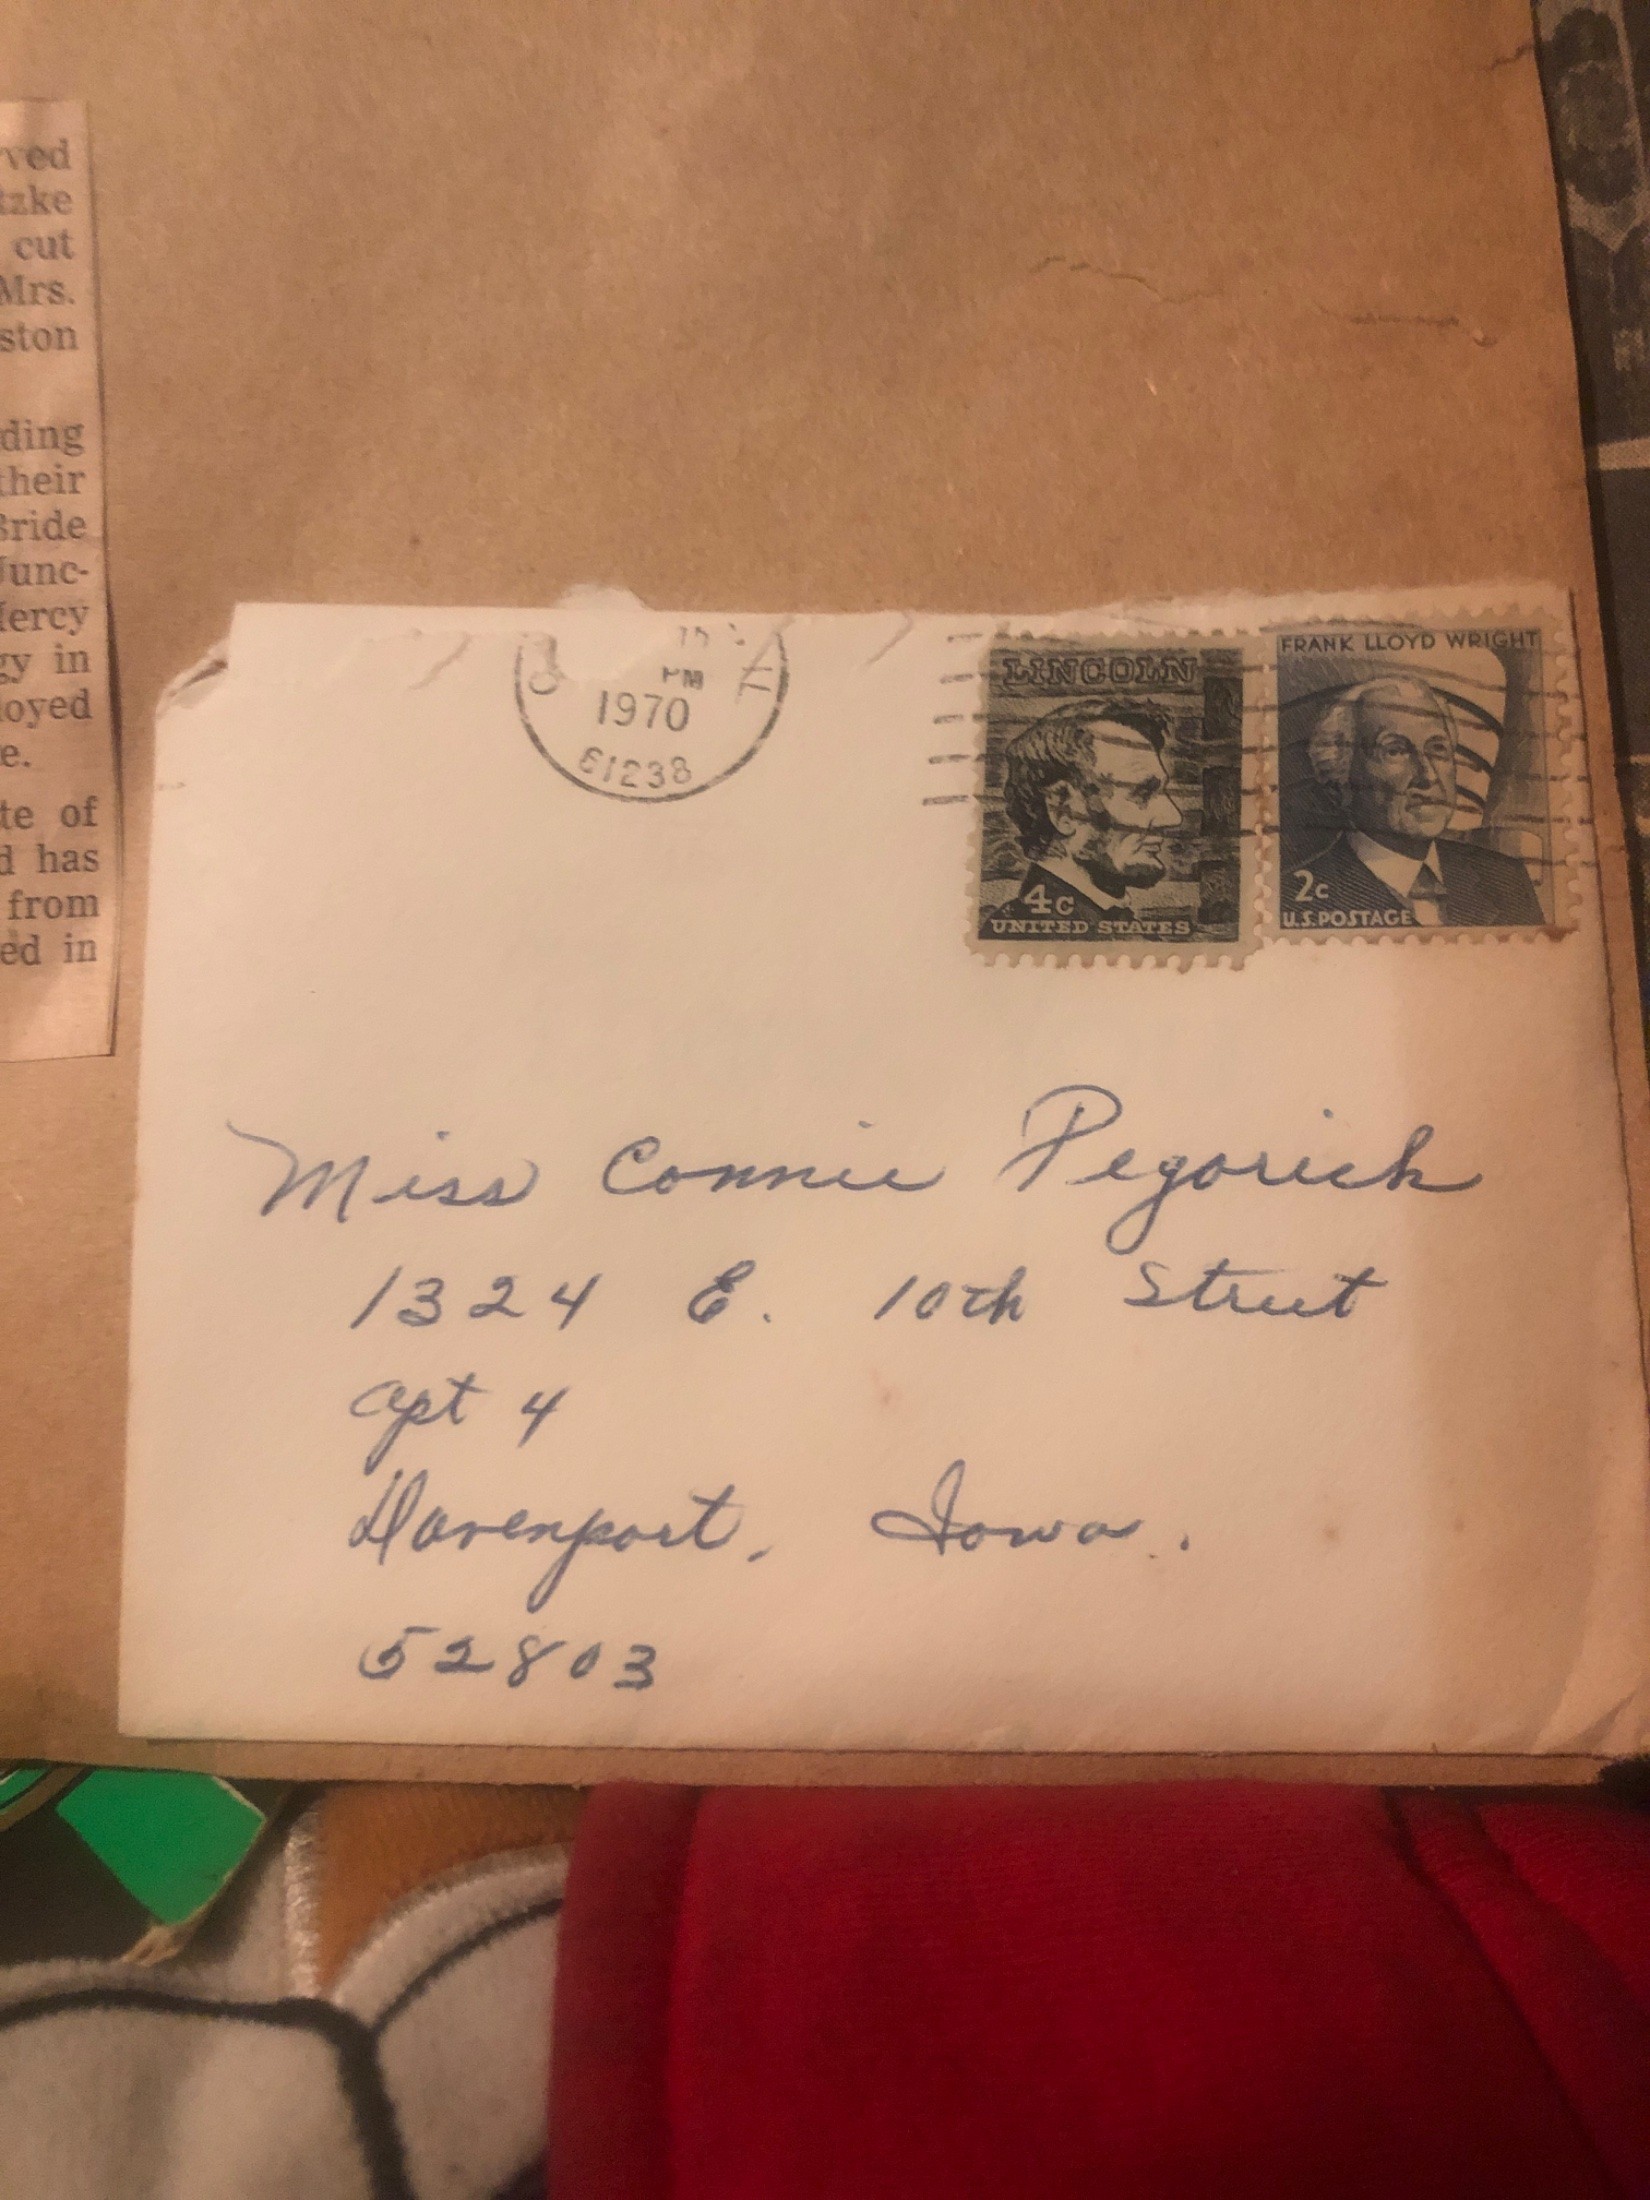 ved
tzke
cut
Mrs.
ston
ding
their
Bride
Junc-
Mercy
gy in
loyed
e.
te of
d has
from
ed in
PM
1970
61238
LINCOLN
4c
UNITED STATES
FRANK LLOYD WRIGHT
2c
U.S.POSTAGE
Miss Connie Pegorick
1324 E. 10th Street
Apt 4
Davenport, Iowa.
52803